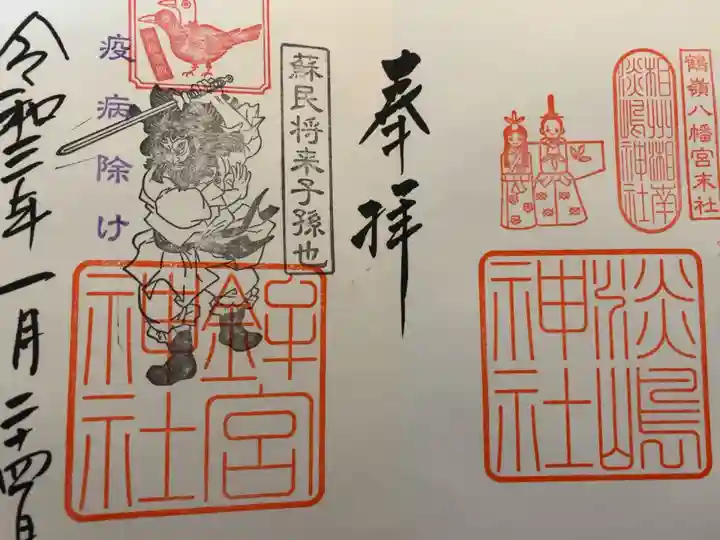 鶴嶺八幡宮末社
相州湘南
淡嶋神社
淡嶋
神社
奉拝
蘇民将来子孫也
鉾宮
神社
疫病除け
令和三年一月二十四日